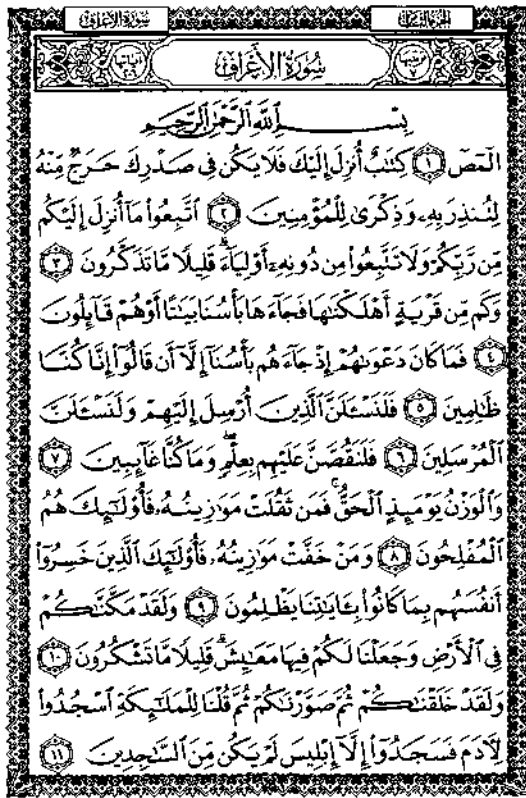 سُورَةُ الأَعْرَافِ الجُزءُ الثَّامِنُ
ترتيبها ٧ سُورَةُ الأَعْرَافِ آياتها ٢٠٦
بِسْمِ اللَّهِ الرَّحْمَٰنِ الرَّحِيمِ
الٓمٓصٓ ١ كِتَٰبٌ أُنزِلَ إِلَيْكَ فَلَا يَكُن فِى صَدْرِكَ حَرَجٌ مِّنْهُ
لِتُنذِرَ بِهِۦ وَذِكْرَىٰ لِلْمُؤْمِنِينَ ٢ ٱتَّبِعُوا۟ مَآ أُنزِلَ إِلَيْكُم
مِّن رَّبِّكُمْ وَلَا تَتَّبِعُوا۟ مِن دُونِهِۦٓ أَوْلِيَآءَ ۗ قَلِيلًا مَّا تَذَكَّرُونَ ٣
وَكَم مِّن قَرْيَةٍ أَهْلَكْنَٰهَا فَجَآءَهَا بَأْسُنَا بَيَٰتًا أَوْ هُمْ قَآئِلُونَ
٤ فَمَا كَانَ دَعْوَىٰهُمْ إِذْ جَآءَهُم بَأْسُنَآ إِلَّآ أَن قَالُوٓا۟ إِنَّا كُنَّا
ظَٰلِمِينَ ٥ فَلَنَسْـَٔلَنَّ ٱلَّذِينَ أُرْسِلَ إِلَيْهِمْ وَلَنَسْـَٔلَنَّ
ٱلْمُرْسَلِينَ ٦ فَلَنَقُصَّنَّ عَلَيْهِم بِعِلْمٍ ۖ وَمَا كُنَّا غَآئِبِينَ ٧
وَٱلْوَزْنُ يَوْمَئِذٍ ٱلْحَقُّ ۚ فَمَن ثَقُلَتْ مَوَٰزِينُهُۥ فَأُو۟لَٰٓئِكَ هُمُ
ٱلْمُفْلِحُونَ ٨ وَمَنْ خَفَّتْ مَوَٰزِينُهُۥ فَأُو۟لَٰٓئِكَ ٱلَّذِينَ خَسِرُوٓا۟
أَنفُسَهُم بِمَا كَانُوا۟ بِـَٔايَٰتِنَا يَظْلِمُونَ ٩ وَلَقَدْ مَكَّنَّٰكُمْ
فِى ٱلْأَرْضِ وَجَعَلْنَا لَكُمْ فِيهَا مَعَٰيِشَ ۗ قَلِيلًا مَّا تَشْكُرُونَ ١٠
وَلَقَدْ خَلَقْنَٰكُمْ ثُمَّ صَوَّرْنَٰكُمْ ثُمَّ قُلْنَا لِلْمَلَٰٓئِكَةِ ٱسْجُدُوا۟
لِـَٔادَمَ فَسَجَدُوٓا۟ إِلَّآ إِبْلِيسَ لَمْ يَكُن مِّنَ ٱلسَّٰجِدِينَ ١١